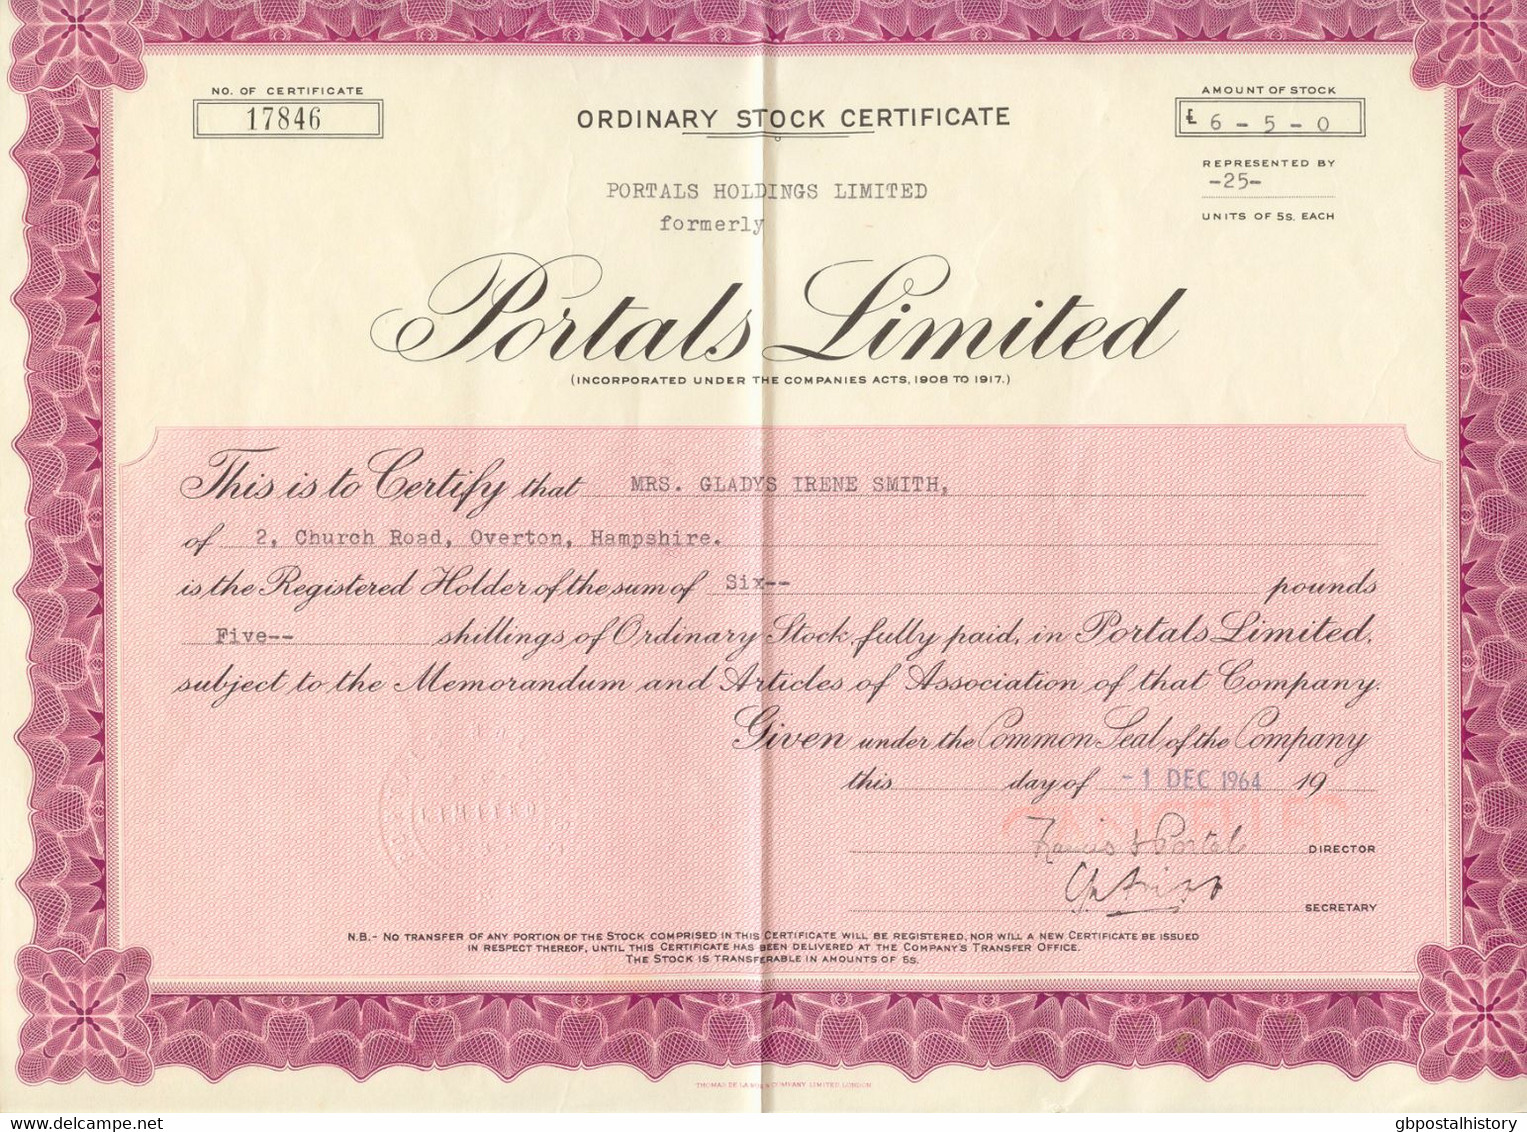 NO. OF CERTIFICATE
17846
ORDINARY STOCK CERTIFICATE
AMOUNT OF STOCK
£ 6 - 5 - 0
REPRESENTED BY
-25-
UNITS OF 5S. EACH
PORTALS HOLDINGS LIMITED
formerly
Portals Limited
(INCORPORATED UNDER THE COMPANIES ACTS, 1908 TO 1917.)
This is to Certify that MRS. GLADYS IRENE SMITH,
of 2, Church Road, Overton, Hampshire.
is the Registered Holder of the sum of Six-- pounds
Five-- shillings of Ordinary Stock, fully paid, in Portals Limited,
subject to the Memorandum and Articles of Association of that Company.
Given under the Common Seal of the Company
this day of - 1 DEC 1964 19
CANCELLED
Francis Portal
DIRECTOR
SECRETARY
LIMITED
N.B. - NO TRANSFER OF ANY PORTION OF THE STOCK COMPRISED IN THIS CERTIFICATE WILL BE REGISTERED, NOR WILL A NEW CERTIFICATE BE ISSUED
IN RESPECT THEREOF, UNTIL THIS CERTIFICATE HAS BEEN DELIVERED AT THE COMPANY'S TRANSFER OFFICE.
THE STOCK IS TRANSFERABLE IN AMOUNTS OF 5S.
THOMAS DE LA RUE & COMPANY LIMITED LONDON
gbpostalhistory